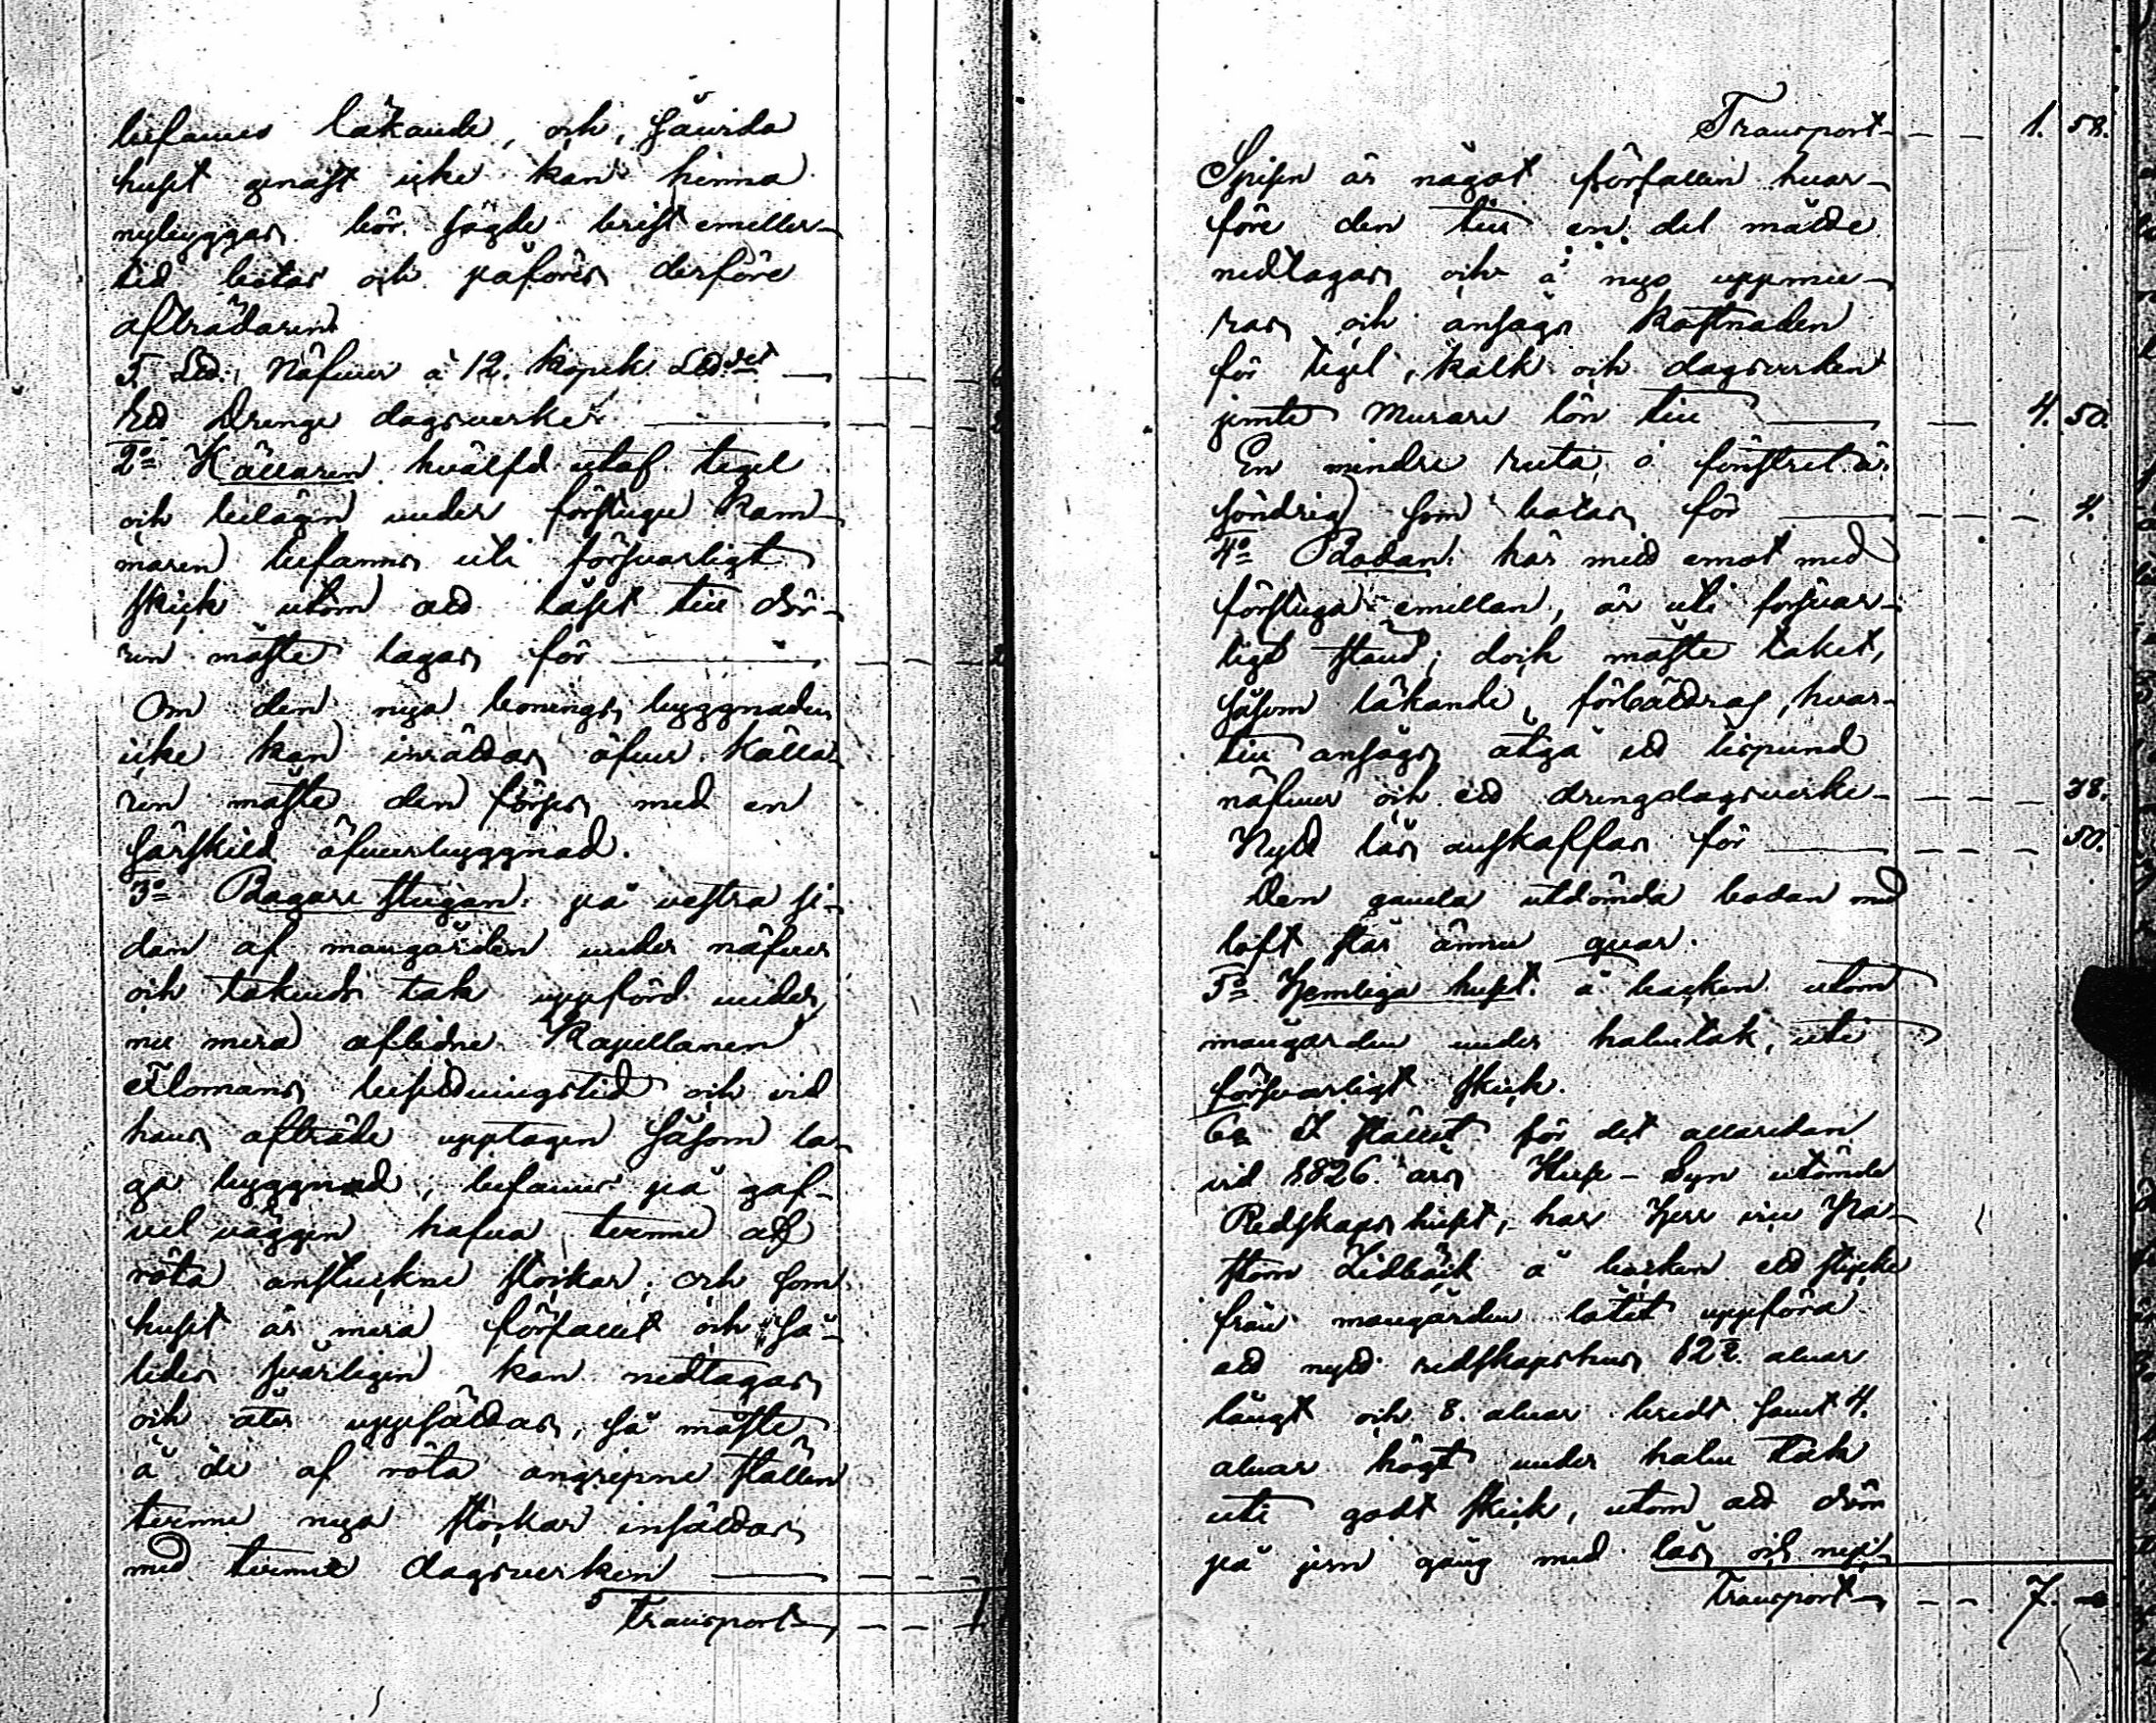 befanns läkande, och, såvida
huset genast icke kan hinna
nybyggas bör sagde brist emeller-
tid botas och påföres derföre
afträdaren
5. L℔. Näfver à 12. kopek L℔det
Ett Drengs dagsverke
2o Källaren hvälfd utaf tegel
och belägen under förstugu kam-
maren befanns uti försvarligt
skick utom att låset till dör-
ren måste lagas för
Om den nya bonings byggnaden
icke kan inrättas öfver källa-
ren måste den förses med en
särskild öfverbyggnad.
3o Bagare stugan: på vestra si-
dan af mangården under näfver
och takveds tak uppförd under
nu mera aflidne Kapellanen
Flomans besittningstid och vid
hans afträde upptagen såsom la-
ga byggnad; befanns på gaf-
vel väggen hafva tvenne af
röta anstuckne stockar; och som
huset är mera förfallet och så-
ledes svårligen kan nedtagas
och åter uppsättas, så måste
å de af röta angripne ställen
tvenne nya stockar insättas
med tvenne dagsverken
Transport 1
Transport 1. 58.
Spisen är något förfallen hvar-
före den till en del måtte
nedtagas och å nyo uppmu-
ras och ansågs kostnaden
för tegel, kalk och dagsverken
jemte Murare lön till 4. 50.
En mindre ruta å fönstret är
söndrig som botas för 4.
4o Bodan: här midt emot med
förstuga emillan, är uti försvar-
ligt stånd; dock måste taket,
såsom läkande, förbättras, hvar-
till ansågs åtgå ett lispund
näfver och ett drengdagsverke 38.
Nytt lås anskaffas för 50.
Den gamla utdömda bodan med
loft står ännu qvar.
5o Hemliga huset: å backen utom
mangården under halmtak, uti
försvarligt skick.
6o I stället för det allaredan
vid 1826 års Huse-Syn utdömde
Redskaps huset, har Herr vice Pa-
storn Lidbäck å backen ett stycke
från mangården låtit uppföra
ett nytt redskapshus 12½ alnar
långt och 8. alnar bredt samt 4.
alnar högt under halm tak
uti godt skick, utom att dörn
på jern gång med lås och
Transport 7.